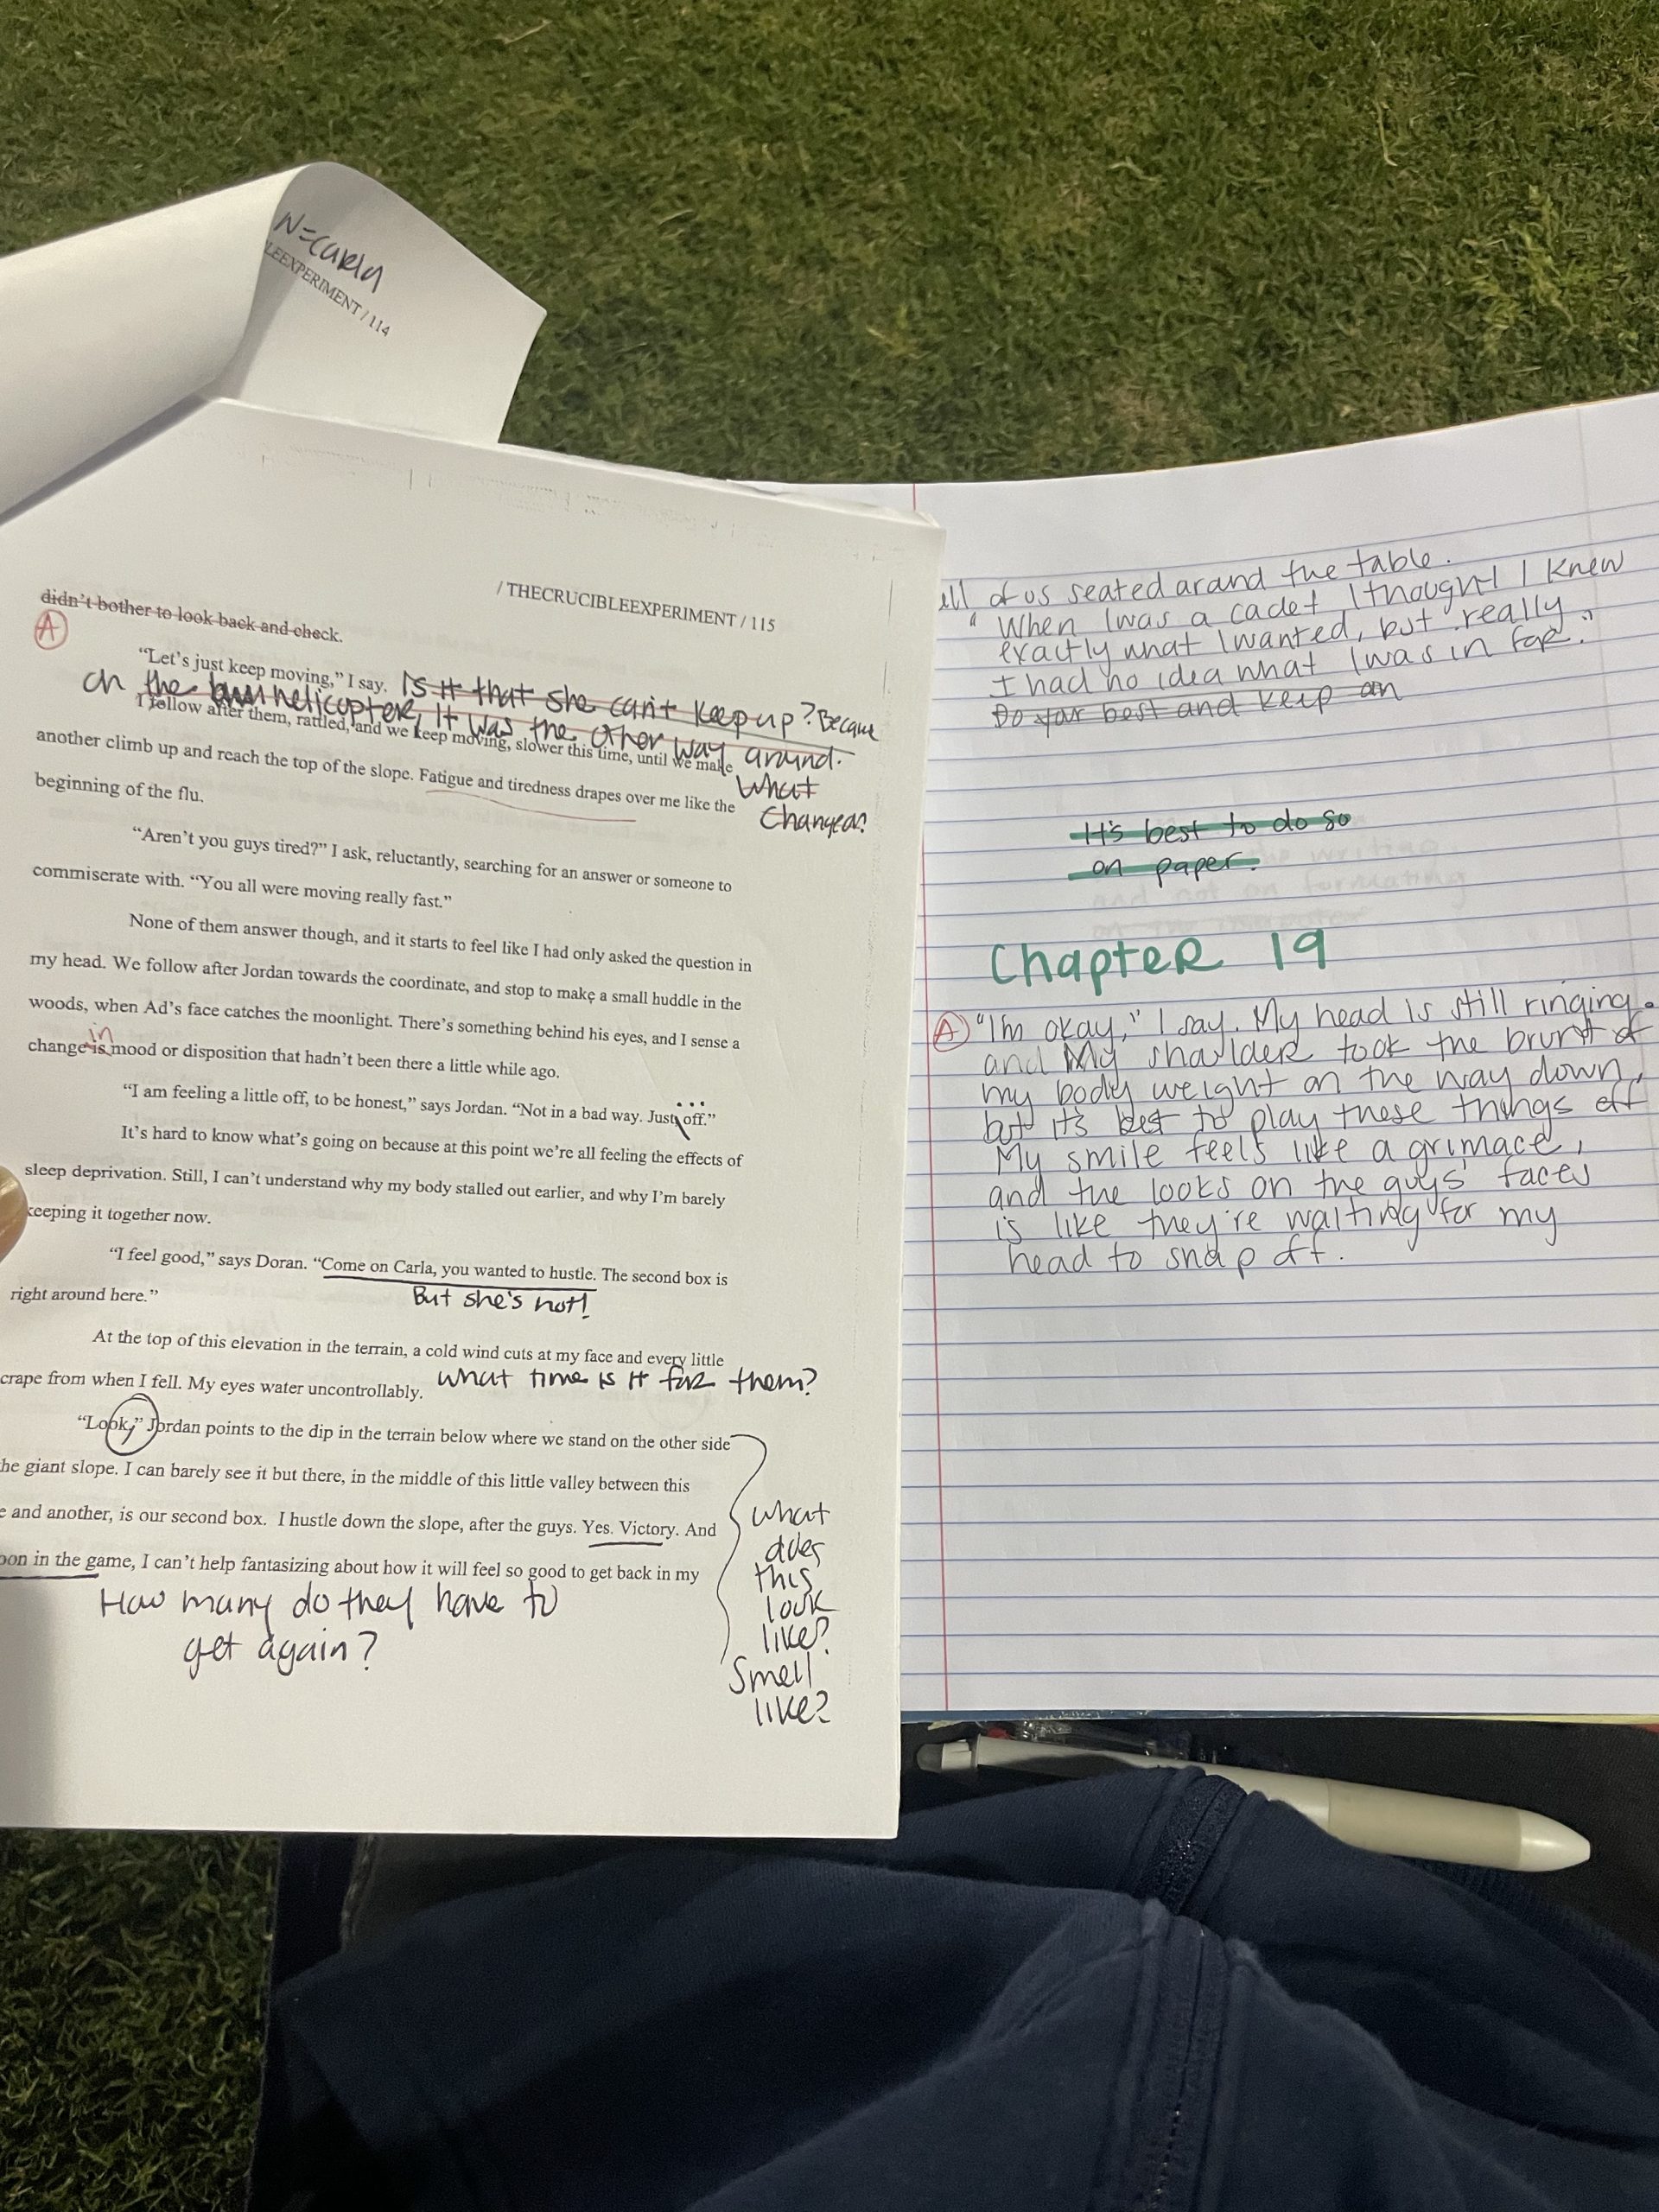 N=Carla
LEEXPERIMENT / 114
/ THECRUCIBLEEXPERIMENT / 115
didn't bother to look back and check.
A
"Let's just keep moving," I say. Is it that she can't keep up? Because
on the helicopter, it was the other way around.
What
Changed?
I follow after them, rattled, and we keep moving, slower this time, until we make
another climb up and reach the top of the slope. Fatigue and tiredness drapes over me like the
beginning of the flu.
"Aren't you guys tired?" I ask, reluctantly, searching for an answer or someone to
commiserate with. "You all were moving really fast."
None of them answer though, and it starts to feel like I had only asked the question in
my head. We follow after Jordan towards the coordinate, and stop to make a small huddle in the
woods, when Ad's face catches the moonlight. There's something behind his eyes, and I sense a
in
change is mood or disposition that hadn't been there a little while ago.
"I am feeling a little off, to be honest," says Jordan. "Not in a bad way. Just ... off."
It's hard to know what's going on because at this point we're all feeling the effects of
sleep deprivation. Still, I can't understand why my body stalled out earlier, and why I'm barely
keeping it together now.
"I feel good," says Doran. "Come on Carla, you wanted to hustle. The second box is
right around here."
But she's not!
At the top of this elevation in the terrain, a cold wind cuts at my face and every little
crape from when I fell. My eyes water uncontrollably. What time is it for them?
"Look," Jordan points to the dip in the terrain below where we stand on the other side
he giant slope. I can barely see it but there, in the middle of this little valley between this
e and another, is our second box. I hustle down the slope, after the guys. Yes. Victory. And
oon in the game, I can't help fantasizing about how it will feel so good to get back in my
How many do they have to
get again?
What
does
this
look
like?
Smell
like?
all of us seated around the table.
"When I was a cadet, I thought I knew
exactly what I wanted, but really,
I had no idea what I was in for."
Do your best and keep on
It's best to do so
on paper.
and not on formatting
Chapter 19
A "I'm okay," I say. My head is still ringing.
and My shoulder took the brunt of
my body weight on the way down,
but it's best to play these things off
My smile feels like a grimace,
and the looks on the guys' faces
is like they're waiting for my
head to snap off.